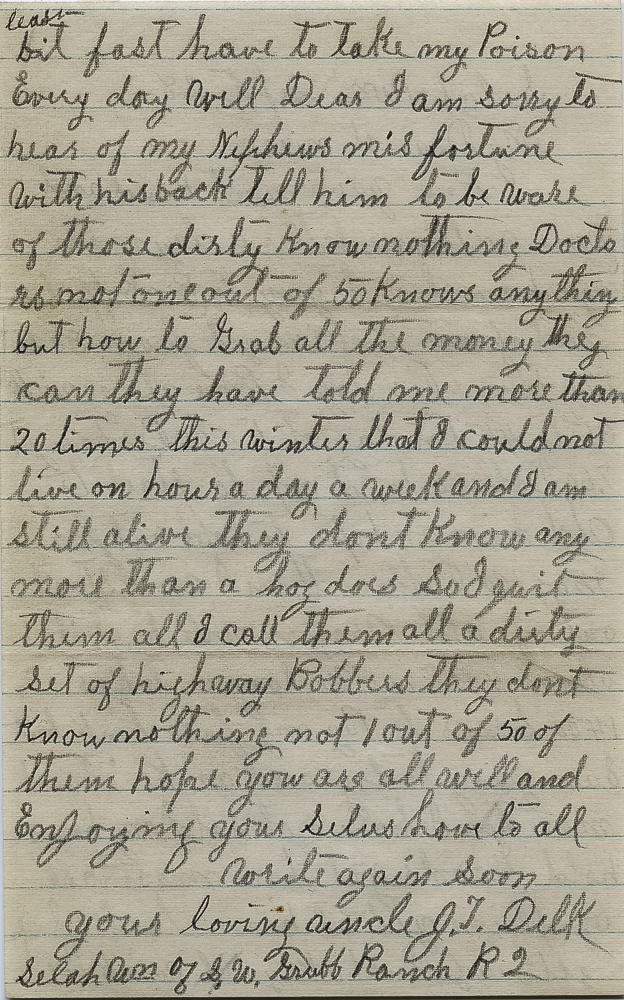 least
bit fast have to take my Poison
Every day Well Dear I am sorry to
hear of my Nephews mis fortune
with his back tell him to be ware
of those dirty Know nothing Docto
rs not one out of 50 Knows anything
but how to Grab all the money they
can they have told me more than
20 times this winter that I could not
live on hour a day a week and I am
still alive they dont Know any
more than a hog does So I quit
them all I call them all a dirty
set of highway Robbers they dont
Know nothing not 1 out of 50 of
them hope you are all well and
Enjoying your Selvs love to all
write again soon
your loving uncle J.T. Delk
Selah Wn % S.W. Grubb Ranch R 2